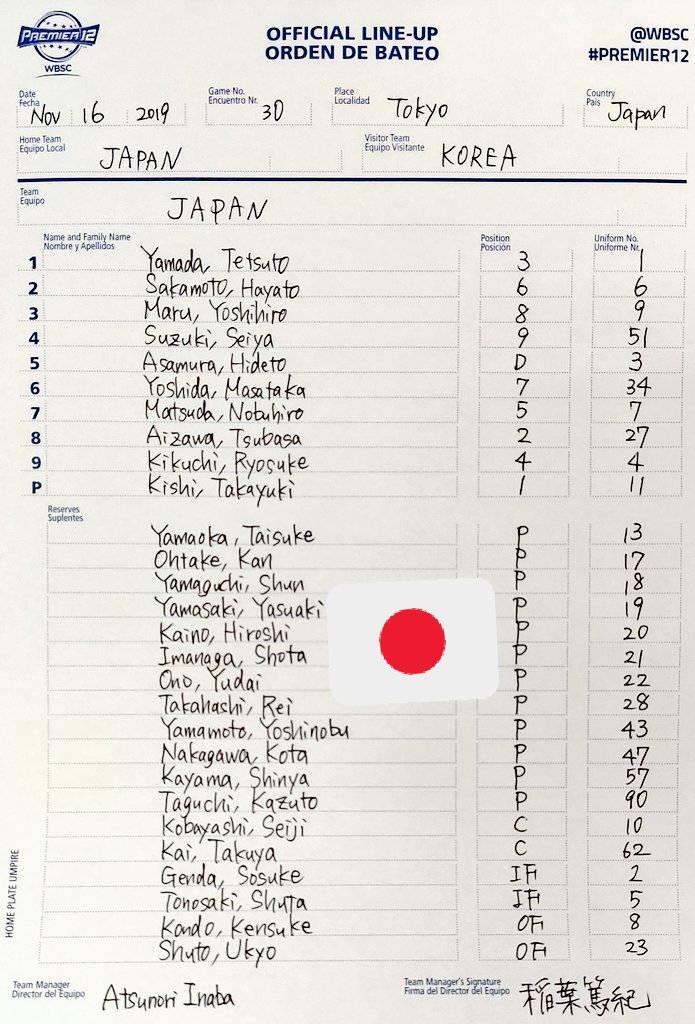 PREMIER 12
WBSC
OFFICIAL LINE-UP
ORDEN DE BATEO
@WBSC
#PREMIER12
Date
Fecha
Nov 16 2019
Game No.
Encuentro Nr.
30
Place
Localidad
Tokyo
Country
Pais
Japan
Home Team
Equipo Local
JAPAN
Visitor Team
Equipo Visitante
KOREA
Team
Equipo
JAPAN
Name and Family Name
Nombre y Apellidos
Position
Posición
Uniform No.
Uniforme Nr.
1 Yamada, Tetsuto 3 1
2 Sakamoto, Hayato 6 6
3 Maru, Yoshihiro 8 9
4 Suzuki, Seiya 9 51
5 Asamura, Hideto D 3
6 Yoshida, Masataka 7 34
7 Matsuda, Nobuhiro 5 7
8 Aizawa, Tsubasa 2 27
9 Kikuchi, Ryosuke 4 4
P Kishi, Takayuki 1 11
Reserves
Suplentes
Yamaoka, Taisuke P 13
Ohtake, Kan P 17
Yamaguchi, Shun P 18
Yamasaki, Yasuaki P 19
Kaino, Hiroshi P 20
Imanaga, Shota P 21
Ono, Yudai P 22
Takahashi, Rei P 28
Yamamoto, Yoshinobu P 43
Nakagawa, Kota P 47
Kayama, Shinya P 57
Taguchi, Kazuto P 90
Kobayashi, Seiji C 10
Kai, Takuya C 62
Genda, Sosuke IF 2
Tonosaki, Shuta IF 5
Kondo, Kensuke OF 8
Shuto, Ukyo OF 23
HOME PLATE UMPIRE
Team Manager
Director del Equipo
Atsunori Inaba
Team Manager's Signature
Firma del Director del Equipo
稲葉篤紀